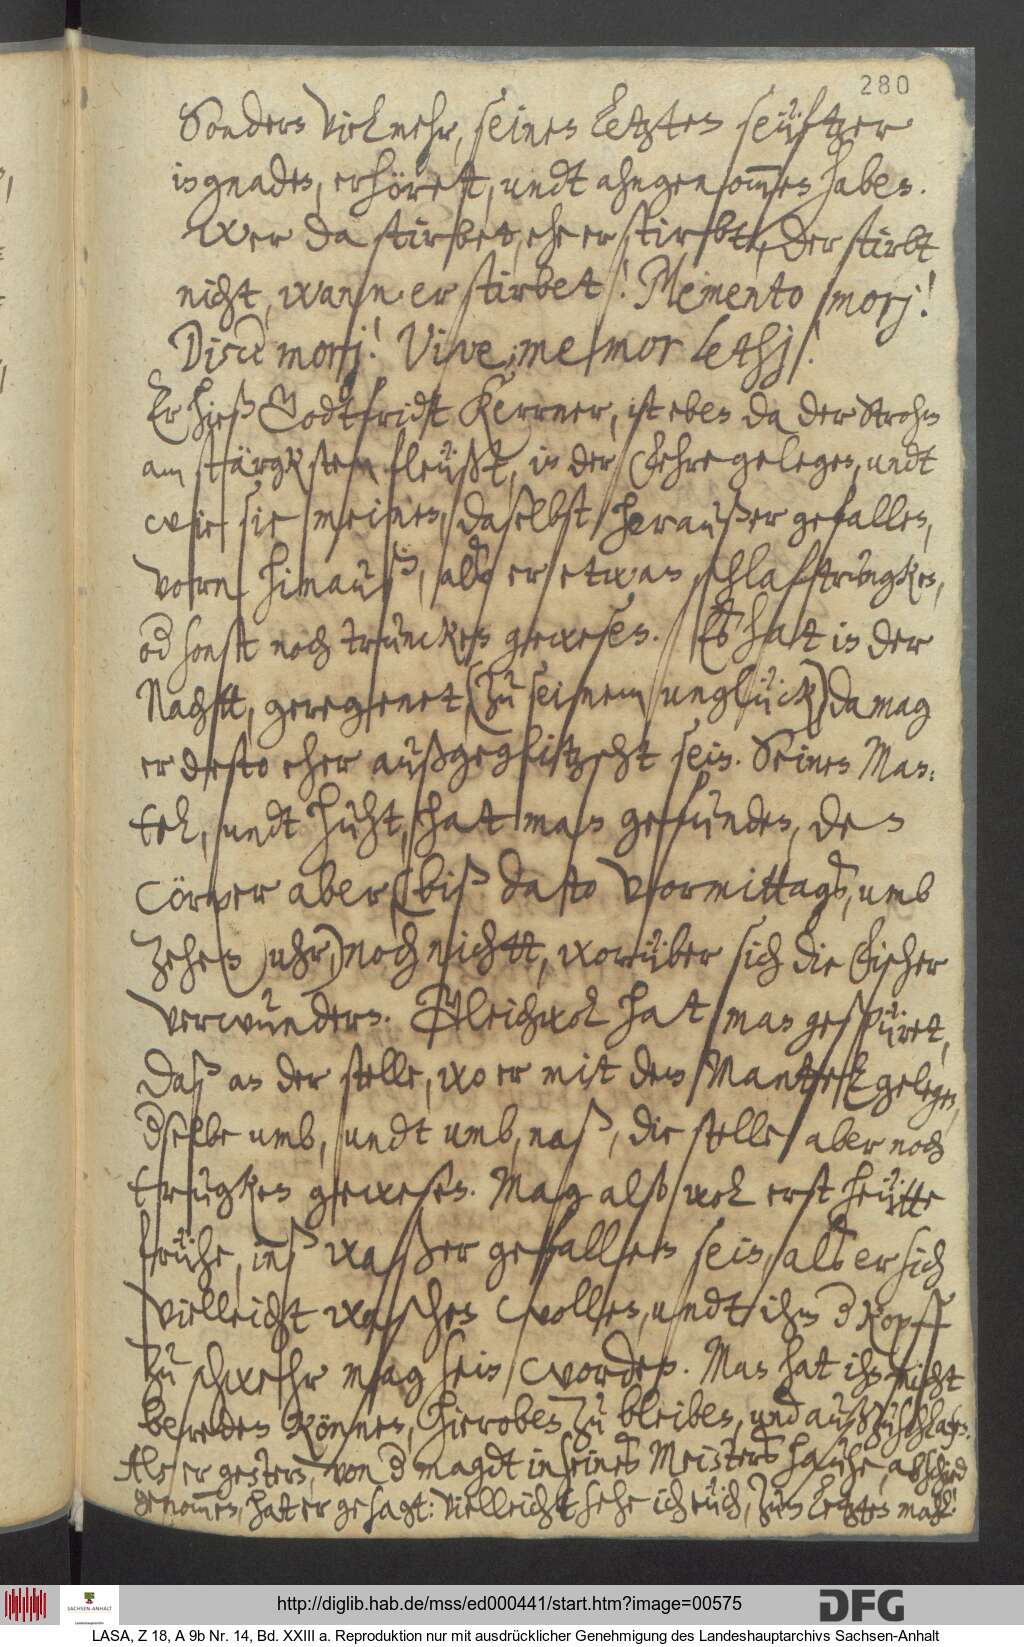 280
Sondern vielmehr, seinen letzten seüftzer
in gnaden, erhöret, undt ahngenom̅en haben.
Wer da stirbet, ehe er stirbt, der stirbt
nicht, wann er stirbet! Memento morj!
Disce morj! Vive memor lethj!
Er hieß Godtfridt Kerrner, ist eben da der Strohm
am stärgksten fleüßt, in der Fehre gelegen, undt
wie sie meinen, daselbst heraußer gefallen,
vorn hinauß, alß er etwan schlaftrungken,
od sonst noch truncken gewesen. Es hat in der
Nachtt, geregenet, (zu seinem unglück) da mag
er desto eher außgeglitzscht sein. Seinen Man-
tel, undt huht, hat man gefunden, den
Cörper aber (biß dato Vormittags, umb
zehen uhr,) noch nichtt, worüber sich die Fischer
verwundern. Gleichwol hat man gespüret,
daß an der stelle, wo er mit dem Mantel gelegen,
dselbe umb, undt umb, naß, die stelle aber noch
trugken gewesen. Mag also wol erst heütte
frühe, inß waßer gefallen sein, als er sich
vielleicht waschen wollen, undt ihm d Kopff
zu schwehr mag sein worden. Man hat ihn nicht
bereden können, hieroben zu bleiben, und außzuschlafen.
Als er gestern, von d magdt in seines Meisters hause, abschied
genom̅en, hat er gesagt: vielleicht sehe ich eüch, zum letzten mahl!
http://diglib.hab.de/mss/ed000441/start.htm?image=00575
SACHSEN-ANHALT
Landeshauptarchiv
DFG
LASA, Z 18, A 9b Nr. 14, Bd. XXIII a. Reproduktion nur mit ausdrücklicher Genehmigung des Landeshauptarchivs Sachsen-Anhalt